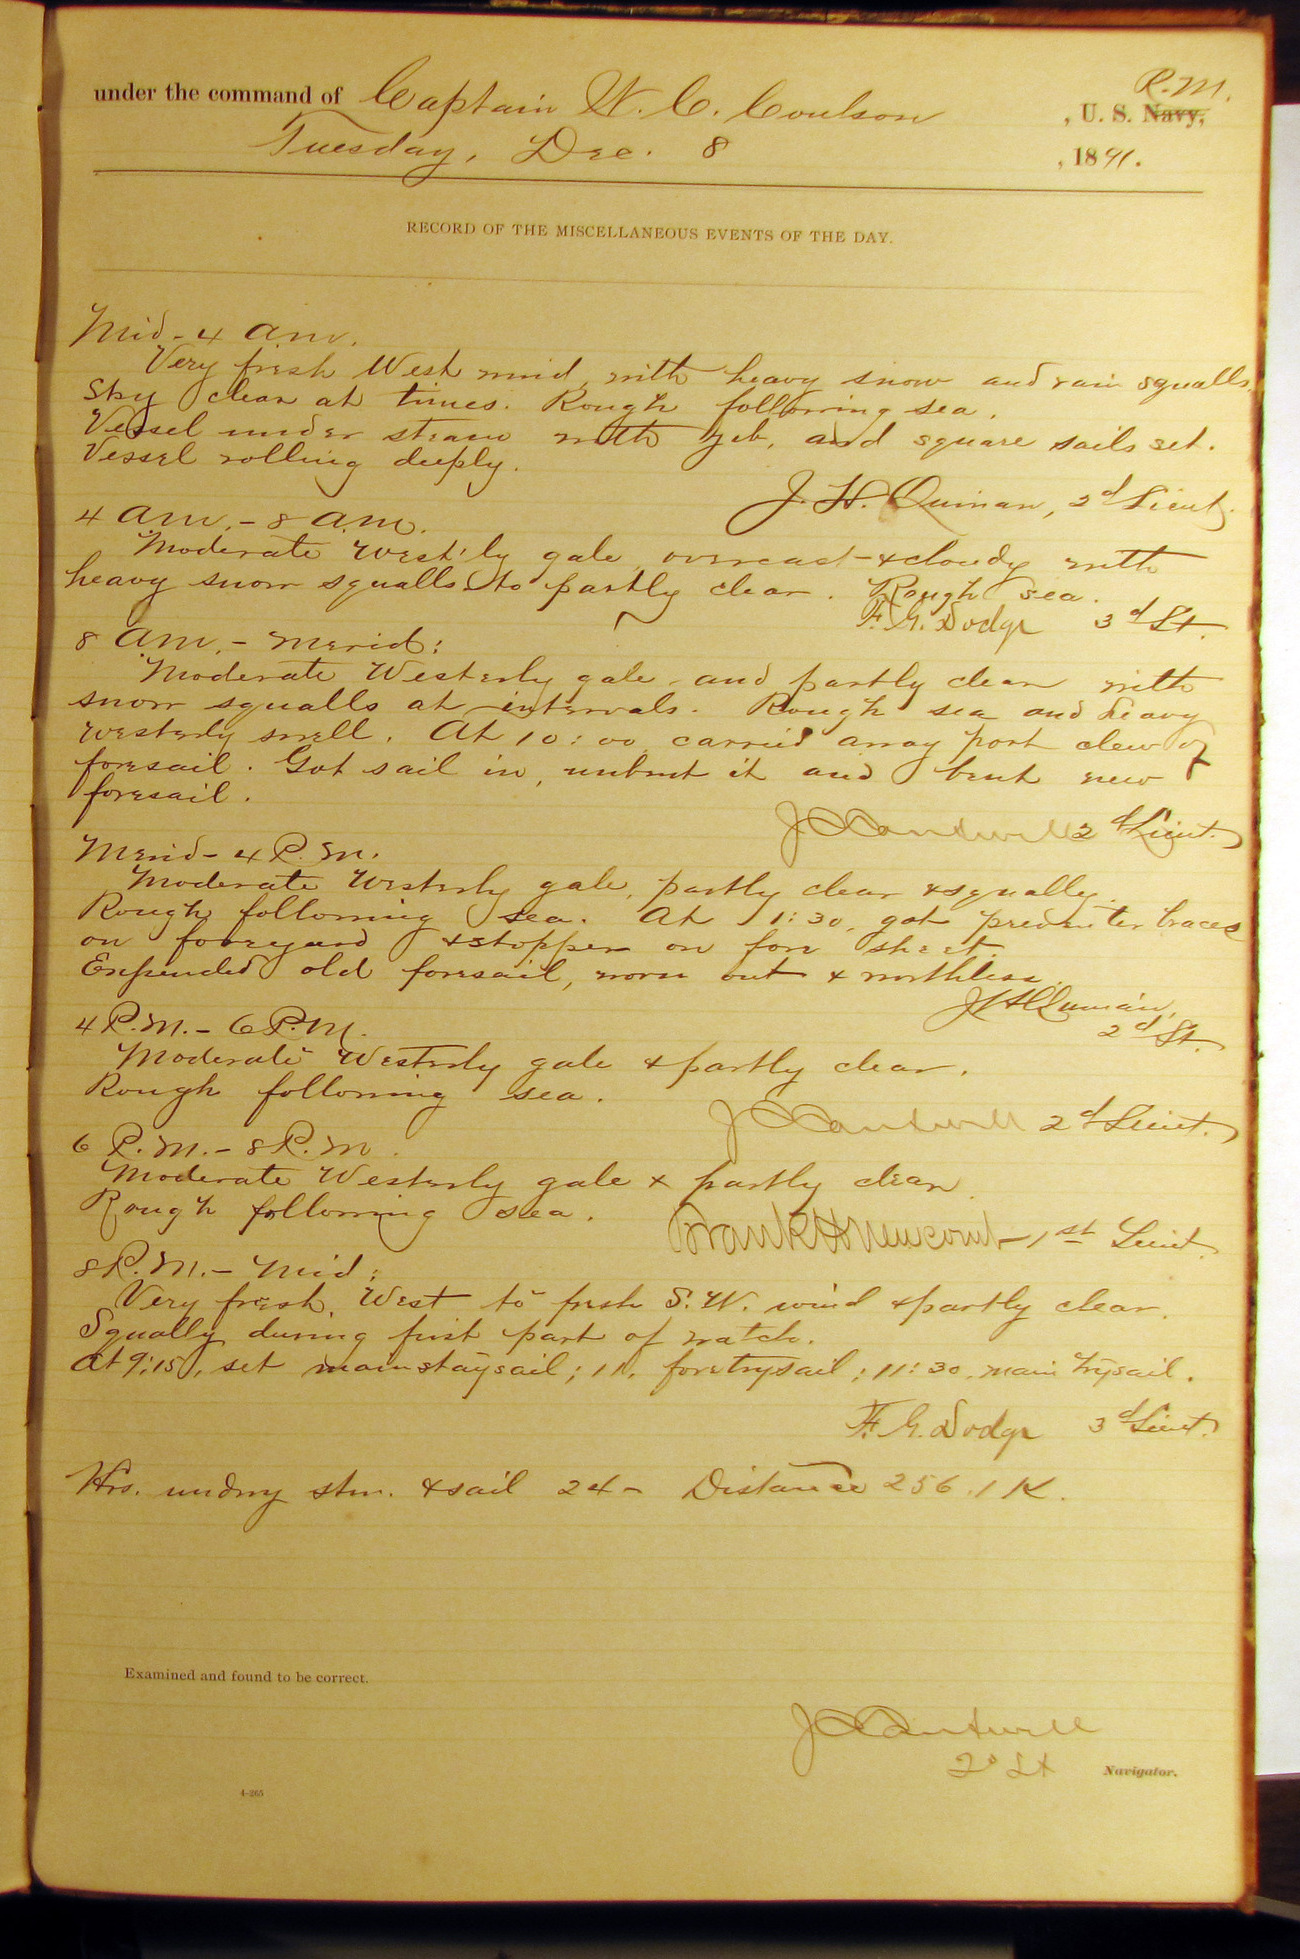 R.M.
under the command of Captain W. C. Coulson , U. S. Navy,
Tuesday, Dec. 8 , 1891.
RECORD OF THE MISCELLANEOUS EVENTS OF THE DAY.
Mid - 4 a.m.
Very fresh West wind, with heavy snow and rain squalls.
Sky clear at times. Rough following sea.
Vessel under steam with jib, and square sails set.
Vessel rolling deeply.
J. H. Quinan, 2d Lieut.
4 a.m. - 8 a.m.
Moderate West'ly gale, overcast & cloudy with
heavy snow squalls to partly clear. Rough sea.
F. G. Dodge 3d Lt.
8 a.m. - Merid:
Moderate Westerly gale and partly clear with
snow squalls at intervals. Rough sea and heavy
westerly swell. At 10:00 carried away port clew of
foresail. Got sail in, unbent it and bent new
foresail.
J C Cantwell 2d Lieut.
Merid - 4 P.M.
Moderate Westerly gale, partly clear & squally.
Rough following sea. At 1:30, got preventer braces
on foreyard & stopper on fore sheet.
Expended old foresail, worn out & worthless.
J H Quinan,
2d Lt.
4 P.M. - 6 P.M.
Moderate Westerly gale & partly clear.
Rough following sea.
J C Cantwell 2d Lieut.
6 P.M. - 8 P.M.
Moderate Westerly gale & partly clear.
Rough following sea.
Frank H Newcomb - 1st Lieut.
8 P.M. - Mid:
Very fresh, West to fresh S.W. wind & partly clear.
Squally during first part of watch.
At 9:15, set mainstaysail; 11, foretrysail; 11:30, main trysail.
F. G. Dodge 3d Lieut.
Hrs. undwy stm. & sail 24 - Distance 256.1 K.
Examined and found to be correct.
J C Cantwell
2d Lt Navigator.
4-265